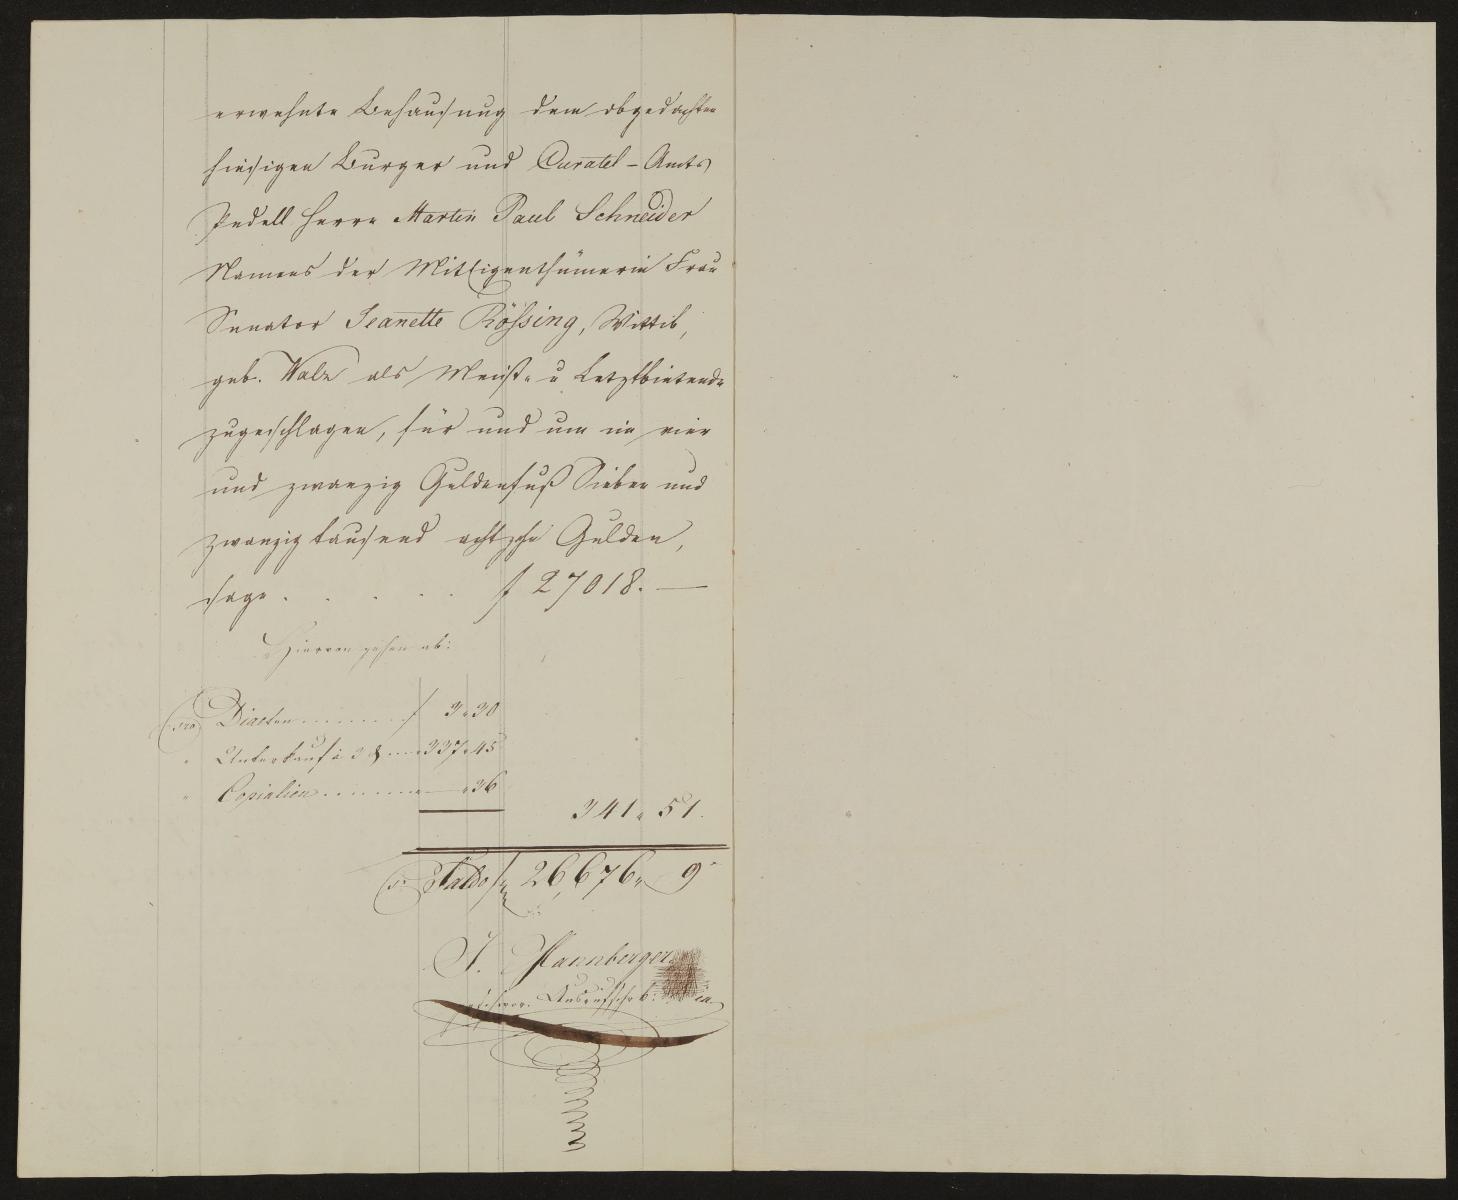 erwehnte Behausung dem obgedachten
hiesigen Burger und Curatel-Amts
Pedell Herrn Martin Paul Schneider
Namens der Miteigenthümerin Frau
Senator Jeanette Rößing, Wittib,
geb. Walz als Meist- u Letztbietende
zugeschlagen, für und um im vier
und zwanzig Guldenfuß Sieben und
zwanzig tausend achtzehn Gulden,
sage . . . . . f 27018. —
Hiervon gehen ab:
pro Diaeten ........ f 3 " 30
" Unterkauf à ... " 337 " 45
" Copialien ........ " — " 36
341 " 51.
pr Saldo f 26,676 " 9
J. Hannberger
geschwor. Ausrufschrb: